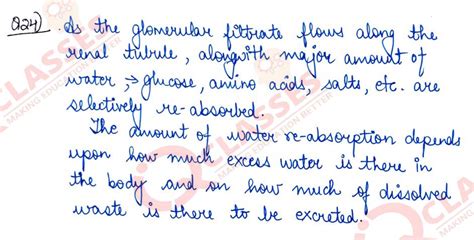 Q24) As the glomerular filtrate flows along the
renal tubule, alongwith major amount of
water, → glucose, amino acids, salts, etc. are
selectively re-absorbed.
The amount of water re-absorption depends
upon how much excess water is there in
the body and on how much of dissolved
waste is there to be excreted.
CLASSES
MAKING EDUCATION BETTER